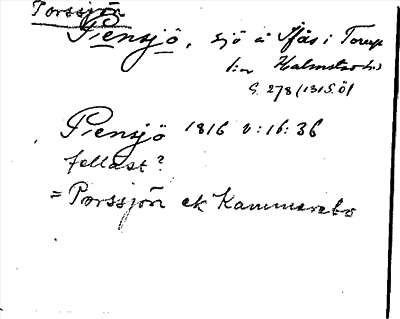 Porssjön
Pensjö, sjö å Ifås i Torup
Halmstads
G. 278 (1315. Öl
Pensjö 1816 v:16:36
fellast?
= Porssjön ek Kammarebo